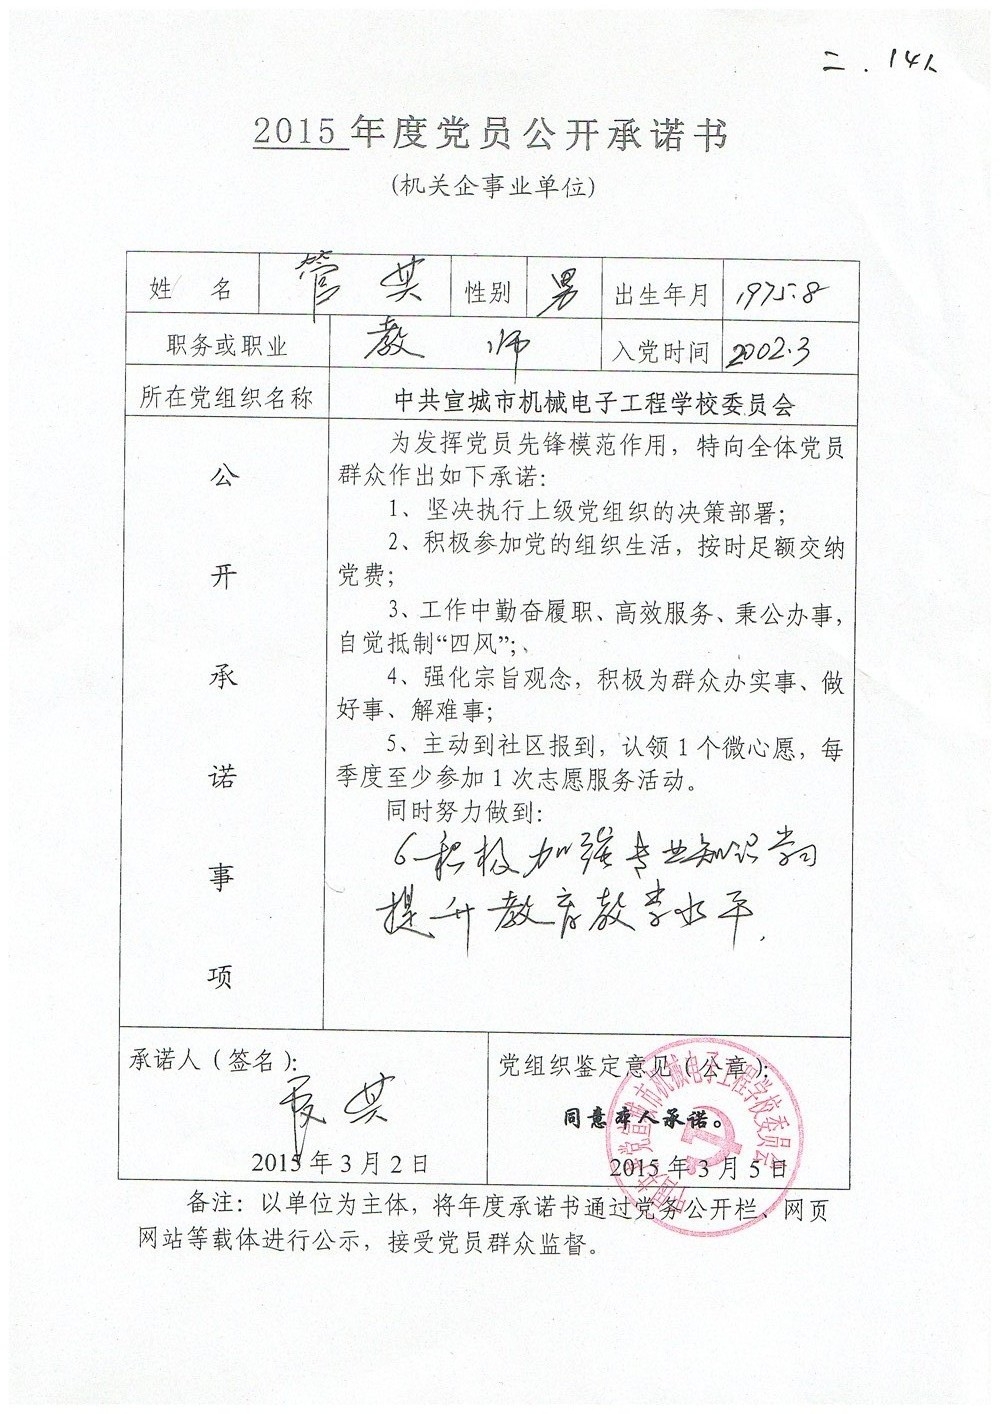 二.14人
2015年度党员公开承诺书
(机关企事业单位)
姓 名 管 其 性别 男 出生年月 1975.8
职务或职业 教 师 入党时间 2002.3
所在党组织名称 中共宣城市机械电子工程学校委员会
公开承诺事项
为发挥党员先锋模范作用，特向全体党员
群众作出如下承诺：
1、坚决执行上级党组织的决策部署；
2、积极参加党的组织生活，按时足额交纳
党费；
3、工作中勤奋履职、高效服务、秉公办事，
自觉抵制“四风”；、
4、强化宗旨观念，积极为群众办实事、做
好事、解难事；
5、主动到社区报到，认领1个微心愿，每
季度至少参加1次志愿服务活动。
同时努力做到：
6 积极加强专业知识学习
提升教育教学水平.
承诺人（签名）：
2015年3月2日
党组织鉴定意见（公章）：
同意本人承诺。
2015年3月5日
中国共产党宣城市机械电子工程学校委员会
备注：以单位为主体，将年度承诺书通过党务公开栏、网页
网站等载体进行公示，接受党员群众监督。